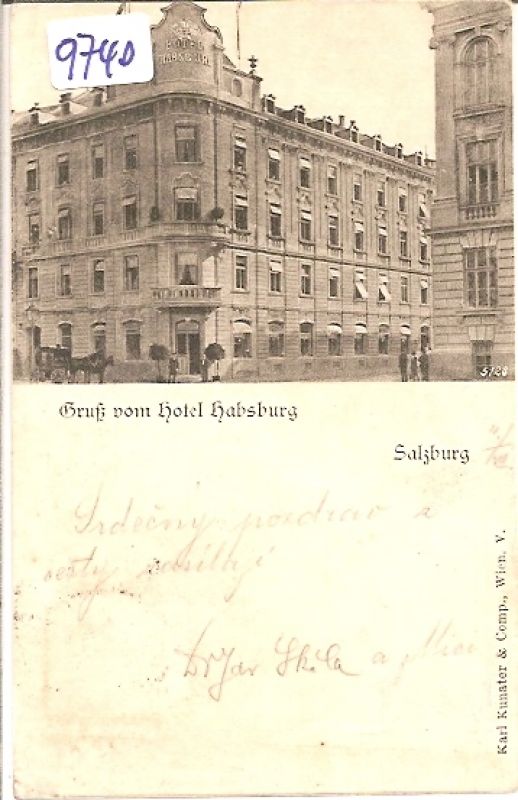 9740
HOTEL
HABSBURG
5720
Gruß vom Hotel Habsburg
Salzburg
Srdečný pozdrav z
cesty zasílají
Dr Jar Skála a Mici
Karl Kunater & Comp., Wien, V.